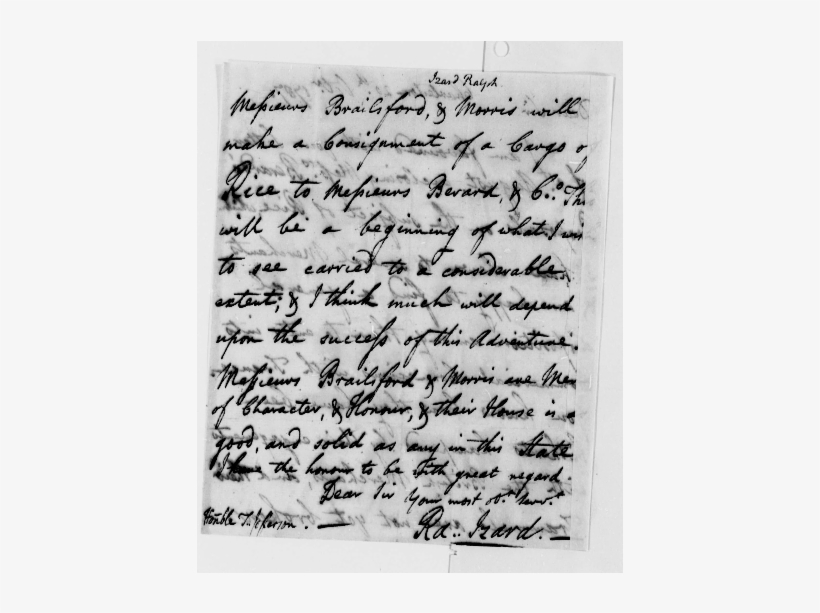 Izard Ralph
Messieurs Brailsford, & Morris will
make a Consignment of a Cargo of
Rice to Messieurs Berard, & Co. Th
will be a beginning of what I wis
to see carried to a considerable
extent; & I think much will depend
upon the success of this Adventure.
Messieurs Brailsford & Morris are Me
of Character, & Honour, & their House is a
good, and solid as any in this State
I have the honour to be with great regard.
Dear Sir Your most obt. servt.
Honble T Jefferson. —
Ra.. Izard. —